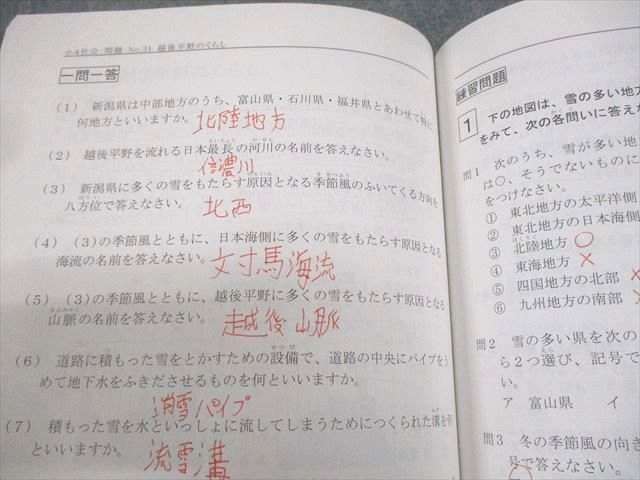 小4社会 問題 No.31 越後平野のくらし
一問一答
(1) 新潟県は中部地方のうち、富山県・石川県・福井県とあわせて特に
何地方といいますか。北陸地方
(2) 越後平野を流れる日本最長の河川の名前を答えなさい。
信濃川
(3) 新潟県に多くの雪をもたらす原因となる季節風のふいてくる方向を
八方位で答えなさい。 北西
(4) (3)の季節風とともに、日本海側に多くの雪をもたらす原因となる
海流の名前を答えなさい。対馬海流
(5) (3)の季節風とともに、越後平野に多くの雪をもたらす原因となる
山脈の名前を答えなさい。 越後山脈
(6) 道路に積もった雪をとかすための設備で、道路の中央にパイプをう
めて地下水をふきださせるものを何といいますか。
消雪パイプ
(7) 積もった雪を水といっしょに流してしまうためにつくられた溝を何
といいますか。 流雪溝
練習問題
1 下の地図は、雪の多い地方
をみて、次の各問いに答え
問1 次のうち、雪が多い地
は○、そうでないものに
をつけなさい。
① 東北地方の太平洋側
② 東北地方の日本海側
③ 北陸地方 ○
④ 東海地方 ×
⑤ 四国地方の北部 ×
⑥ 九州地方の南部 ×
問2 雪の多い県を次の
ら2つ選び、記号で
い。
ア 富山県 イ
問3 冬の季節風の向き
号で答えなさい。